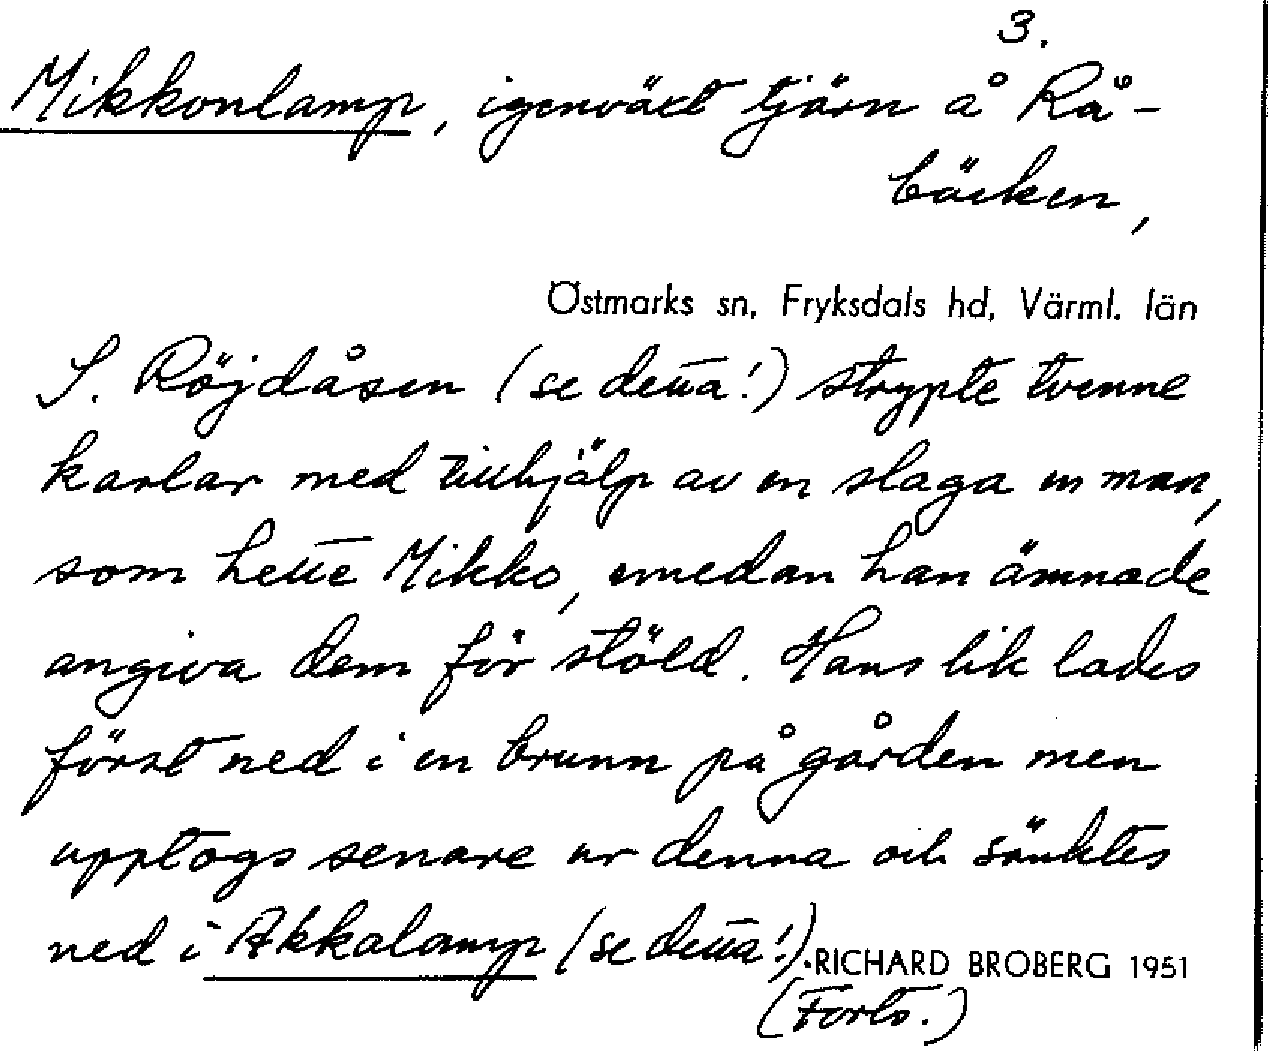 3.
Mikkonlamp, igenväxt tjärn å Rå-
bäcken,
Östmarks sn, Fryksdals hd, Värml. län
S. Röjdåsen (se detta!) strypte tvenne
karlar med tillhjälp av en slaga en man,
som hette Mikko, emedan han ämnade
angiva dem för stöld. Hans lik lades
först ned i en brunn på gården men
upptogs senare ur denna och sänktes
ned i Akkalamp (se detta!).
RICHARD BROBERG 1951
(Forts.)